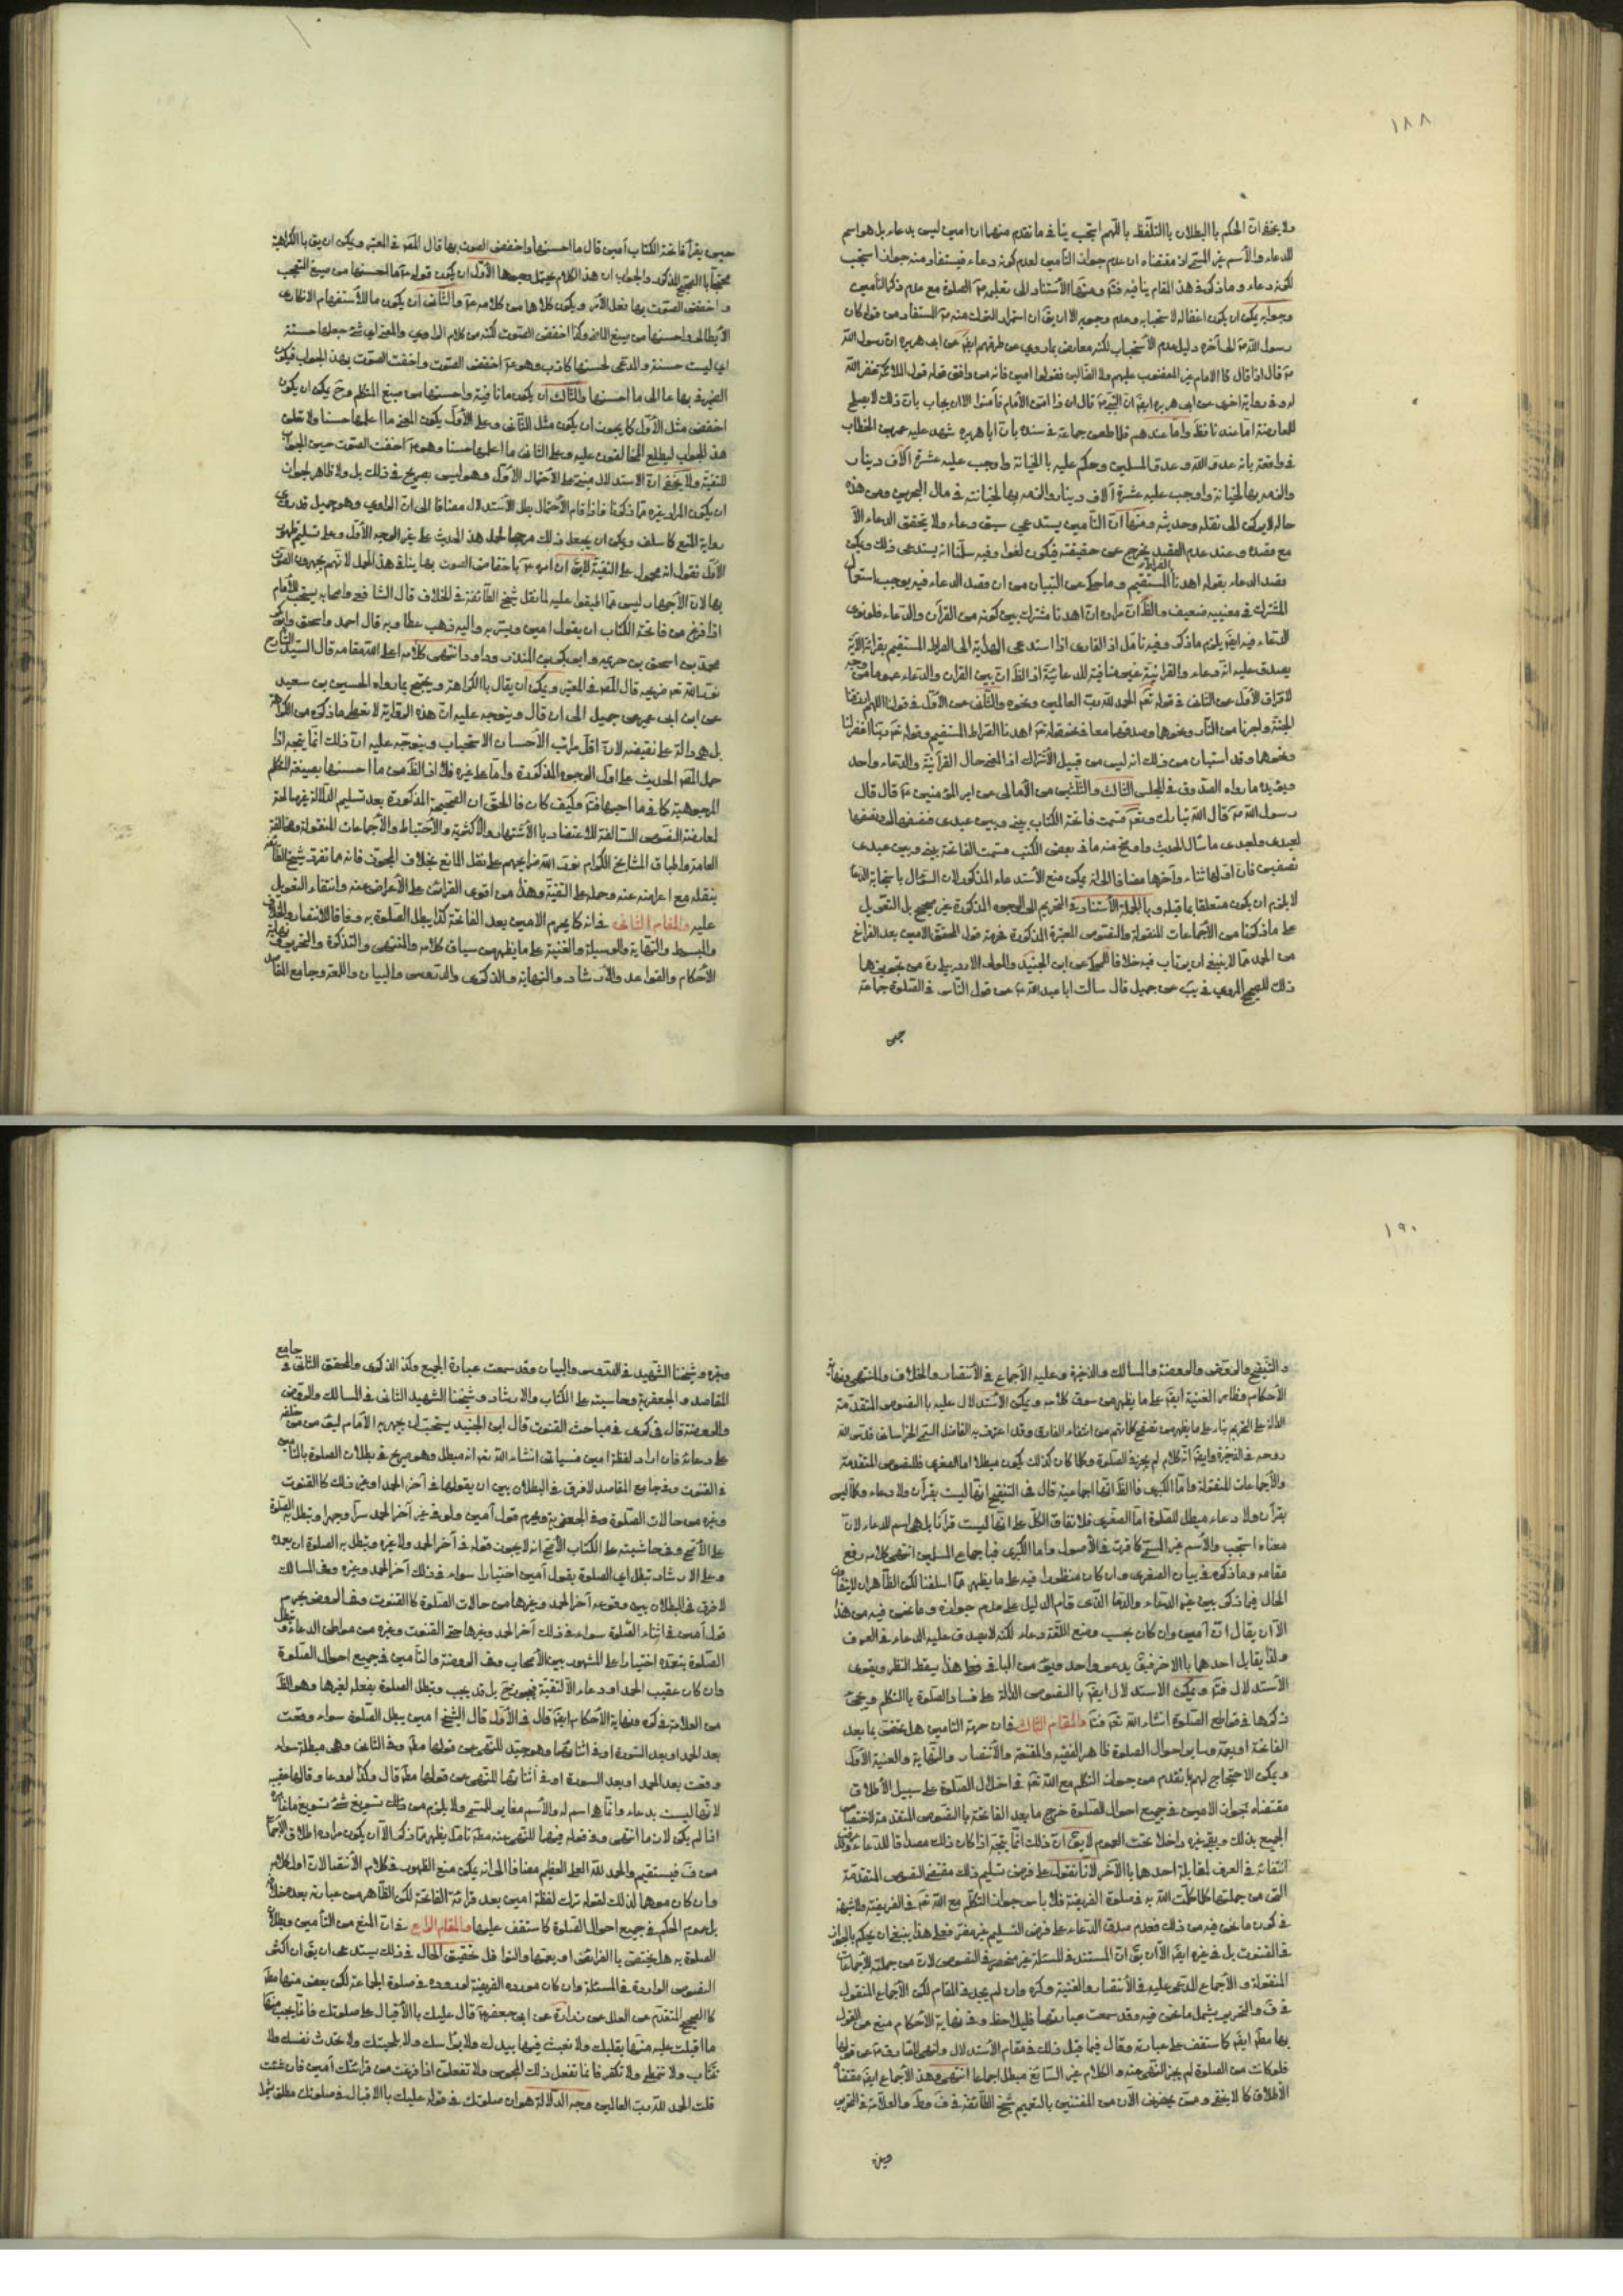 ١٨٨
ولا يخفى ان الحكم بالبطلان بالتلفظ باللهم استجب ينافي ما تقدم منها ان امين ليس بدعاء بل هو اسم
للدعاء والاسم غير المسمى اذ مقتضاه ان عدم جواز التأمين لعدم كونه دعاء فيستفاد منه جواز استجب
لكونه دعاء وما ذكره في هذا المقام ينافيه فتم ومنها الاستناد الى تعليمه الصلوة مع عدم ذكر التأمين
وجوابه يمكن ان يكون اغفاله لاستحبابه وعدم وجوبه الا ان يق ان استمرار الترك منه المستفاد من قوله كان
رسول الله الى آخره دليل عدم الاستحباب لكنه معارض بما روي من طرقهم ايض عن ابي هريرة ان رسول الله
قال اذا قال الامام غير المغضوب عليهم ولا الضالين فقولوا امين فانه من وافق قوله قول الملائكة غفر الله
له وفي رواية اخرى عن ابي هريرة ايض ان النبي قال اذا امن الامام فأمنوا الا ان يجاب بان ذلك لا يصلح
للمعارضة اما عندنا فظ واما عندهم فلما طعن جماعة في سنده بان ابا هريرة شهد عليه عمر بن الخطاب
في واقعة بانه عدو الله وعدو المسلمين وحكم عليه بالخيانة واوجب عليه عشرة آلاف دينار
والزمه بها لخيانة واوجب عليه عشرة آلاف دينار والزمه بها لخيانته في مال البحرين ومن هذه
حاله لا يركن الى نقله وحديثه ومنها ان التأمين يستدعي سبق دعاء ولا يتحقق الدعاء الا
مع قصده وعند عدم القصد يخرج عن حقيقته فيكون لغوا وفيه سلمنا انه يستدعي ذلك ويمكن
قصد الدعاء بقوله اهدنا الصراط المستقيم وما حكي عن التبيان من ان قصد الدعاء فيه يوجب استعمال
المشترك في معنييه ضعيف والظ ان مراده ان اهدنا مشترك بين كونه من القرآن والدعاء فلو نوى
الدعاء فيه ايض يلزم ما ذكر وفيه تامل اذ القاري اذا استدعى الهداية الى الصراط المستقيم بقراءة الآية
يصدق عليه انه دعاء والقرانية غير منافية للدعائية اذ الظ ان بين القران والدعاء عموما من وجه
لافتراق الاول عن الثاني في قوله تعم الحمد لله رب العالمين ونحوه والثاني عن الاول في قولنا اللهم ارزقنا
الجنة واجرنا من النار ونحوها وصدقهما معا في نحو قوله تع اهدنا الصراط المستقيم وقوله تع ربنا اغفر لنا
ونحوها وقد استبان من ذلك انه ليس من قبيل الاشتراك اذ المتحد حال القرآنية والدعاء واحد
ويؤيده ما رواه الصدوق في المجلس الثالث والثلثين من الامالي عن امير المؤمنين قال قال
رسول الله قال الله تبارك وتعم قسمت فاتحة الكتاب بيني وبين عبدي فنصفها لي ونصفها
لعبدي ولعبدي ما سأل الحديث واوضح منه ما في بعض الكتب قسمت الفاتحة بيني وبين عبدي
نصفين فان اولها ثناء وآخرها مضافا الى انه يمكن منع الاستدعاء المذكور لان السؤال باستجابة الدعاء
لا يلزم ان يكون متعلقا بما قبله وبالجملة الاستناد في التحريم الى الوجوه المذكورة غير صحيح بل التعويل
على ما ذكرنا من الاجماعات المنقولة والنصوص المعتبرة المذكورة فحرمة قول امين بعد الفراغ
من الحمد مما لا ينبغي ان يرتاب فيه خلافا للمحكي عن ابن الجنيد والمولى الاردبيلي من تجويزهما
ذلك للصحيح المروي في يب عن جميل قال سالت ابا عبد الله عن قول الناس في الصلوة جماعة
حين
حين يقرأ فاتحة الكتاب آمين قال ما احسنها واخفض الصوت بها قال المص في المعتبر ويمكن ان يق بالكراهة
محتجا بالصحيح المذكور والجواب ان هذا الكلام يحتمل وجوها الاول ان يكون قوله ما احسنها من صيغ التعجب
واخفض الصوت بها فعل الامر ويكون كلاهما من كلامه والثاني ان يكون ما للاستفهام الانكاري
الابطالي واحسنها من صيغ الماضي وكذا اخفض الصوت لكنه من كلام الراوي والمعنى اي شئ جعلها حسنة
اي ليست حسنة والمدعي لحسنها كاذب وهو اخفض الصوت واخفت الصوت بهذا الجواب فيكون
الضمير في بها عائدا الى ما احسنها والثالث ان يكون ما نافية واحسنها من صيغ المتكلم وح يمكن ان يكون
اخفض مثل الاول كما يجوز ان يكون مثل الثاني وعلى الاول يكون المعنى ما اعلمها حسنا ولا تعلن
هذا الجواب ليطلع المخالفون عليه وعلى الثاني ما اعلمها حسنا وهو اخفت الصوت حين الجواب
للتقية ولا يخفى ان الاستدلال مبني على الاحتمال الاول وهو ليس بصريح في ذلك بل ولا ظاهر لجواز
ان يكون المراد غيره مما ذكرنا فاذا قام الاحتمال بطل الاستدلال مضافا الى ان الراوي وهو جميل قد روى
رواية المنع كما سلف ويمكن ان يجعل ذلك مرجحا لحمل هذا الحديث على غير الوجه الاول وعلى تسليم ظهور
الاول نقول انه محمول على التقية لا يق ان امره باخفاض الصوت بها ينافي هذا الحمل لانهم يجهرون الصوت
بها لان الاجهار ليس مما اتفقوا عليه لما نقل شيخ الطائفة في الخلاف قال الشافعي واصحابه يستحب للامام
اذا فرغ من فاتحة الكتاب ان يقول امين ويستر به واليه ذهب عطا وبه قال احمد واسحق وابو بكر
محمد بن اسحق بن خزيمة وابو بكر بن المنذر وداود انتهى كلامه اعلى الله مقامه قال السيد الشارح
نور الله تع ضريحه قال المص في المعتبر ويمكن ان يقال بالكراهة ويحتج بما رواه الحسين بن سعيد
عن ابن ابي عمير عن جميل الى ان قال ويتوجه عليه ان هذه الرواية لا تعطي ما ذكره من الكراهة
بل هي دالة على نقيضه لان اقل مراتب الاحسان الاستحباب ويتوجه عليه ان ذلك انما يتجه اذا
حمل المص الحديث على اول الوجوه المذكورة واما على غيره فلا اذ الظ من ما احسنها بصيغة المتكلم
المرجوحية كما في ما احبها فتم وكيف كان فالحق ان الصحيحة المذكورة بعد تسليم الدلالة غير صالحة
لمعارضة النصوص السالفة للاعتضاد بالاشتهار والاكثرية والاحتياط والاجماعات المنقولة ومخالفة
العامة واطباق المشايخ الكرام نور الله ضرايحهم على نقل المانع بخلاف المجوز فانه مما تفرد شيخ الطائفة
بنقله مع اعراضه عنه وحمله على التقية وهذا من اقوى القرائن على الاعراض عنه وانتفاء التعويل
عليه والمقام الثاني فانه كما يحرم الامين بعد الفاتحة كذا يبطل الصلوة به وفاقا للانتصار والخلاف
والمبسوط والنهاية والوسيلة والغنية على ما يظهر من سياق كلامه والمنتهى والتذكرة والتحرير ونهاية
الاحكام والقواعد والارشاد والنهاية والذكرى والدروس والبيان واللمعة وجامع المقاصد
١٩٠
والتنقيح والروض والروضة والمسالك والذخيرة وعليه الاجماع في الانتصار والخلاف والمنتهى ونهاية
الاحكام وظاهر الغنية ايض على ما يظهر من سوق كلامه ويمكن الاستدلال عليه بالنصوص المتقدمة
الدالة على التحريم بناء على ما يظهر من تصفح كلماتهم من انتفاء الفارق وقد اعترف به الفاضل السمي الخراساني قدس الله
روحه في الذخيرة وايض انه كلام لم يجز في الصلوة وكلما كان كذلك يكون مبطلا اما الصغرى فللنصوص المتقدمة
والاجماعات المنقولة واما الكبرى فالظ انها اجماعية قال في التنقيح انها ليست بقرآن ولا دعاء وكلما ليس
بقرآن ولا دعاء مبطل للصلوة اما الصغرى فلاتفاق الكل على انها ليست قرآنا بل هي اسم للدعاء لان
معناه استجب والاسم غير المسمى كما قرر في الاصول واما الكبرى فباجماع المسلمين انتهى كلامه رفع
مقامه وما ذكره في بيان الصغرى وان كان منظورا فيه على ما يظهر مما اسلفنا لكن الظاهر ان
الحال فيما ذكر بين غير الدعاء والدعاء الذي قام الدليل على عدم جوازه وما نحن فيه من هذا
الا ان يقال ان آمين وان كان بحسب وضع اللغة دعاء لكنه لا يصدق عليه الدعاء في العرف
ولذا يقابل احدهما بالاخر فيق يدعو واحد ويؤمن الباقي فعلى هذا يسقط النظر ويقوى
الاستدلال فتم ويمكن الاستدلال ايض بالنصوص الدالة على فساد الصلوة بالتكلم ويجئ
ذكرها في قواطع الصلوة انشاء الله تعم فتم والمقام الثالث فان حرمة التامين هل تختص بما بعد
الفاتحة او يعمه وساير احوال الصلوة ظاهر الفقيه والمقنعة والانتصار والنهاية والغنية الاول
ويمكن الاحتجاج لهم بما تقدم من جواز التكلم مع الله تعم في اخلال الصلوة على سبيل الاطلاق
مقتضاه تجويز الامين في جميع احوال الصلوة خرج ما بعد الفاتحة بالنصوص المتقدمة لاختصاص
الجميع بذلك وبقي غيره داخلا تحت العموم لا يق ان ذلك انما يتجه اذا كان ذلك مصداقا للدعاء
انتفائه في العرف لمقابلة احدهما بالآخر لانا نقول على فرض تسليم ذلك مقتضى النصوص المتقدمة
التي من جملتها كلما كلمت الله به في صلوة الفريضة فلا باس جواز التكلم مع الله تعم في الفريضة ولا شبهة
في كون ما نحن فيه من ذلك فعدم صدق الدعاء على فرض التسليم غير مضر فعلى هذا ينبغي ان يحكم بالجواز
في القنوت بل في غيره ايض الا ان يق ان المستند في المسئلة غير منحصر في النصوص لان من جملته الاجماعات
المنقولة والاجماع المدعى عليه في الانتصار والغنية وغيره وان لم يجد في المقام لكن الاجماع المنقول
في ف والتحرير يشمل ما نحن فيه وقد سمعت عبارتهما قليل احظ وفي نهاية الاحكام منع من القول
بها مط ايض كما ستقف على عبارته وقال فيما قبل ذلك في مقام الاستدلال
فلو كانت من الصلوة لم يجز النهي عنه والكلام غير السائغ مبطل اجماعا انتهى وهذا الاجماع ايض مقتضاه
الاطلاق كما لا يخفى وممن يحضرني الآن من المفتين بالتعميم شيخ الطائفة في ف وط والعلامة في التحرير
وغيره
وغيره وشيخنا الشهيد في الدروس والبيان وقد سمعت عبارة الجميع وكذا الذكرى والمحقق الثاني في جامع
المقاصد والجعفرية وحاشيته على الكتاب والارشاد وشيخنا الشهيد الثاني في المسالك والروض
والروضة قال في كرى في مباحث القنوت قال ابن الجنيد يستحب ان يجهر به الامام ليؤمن من خلفه
على دعائه فان اراد لفظة امين فسياتي انشاء الله تع انه مبطل وهو صريح في بطلان الصلوة بالتامين
في القنوت وفي جامع المقاصد لا فرق في البطلان بين ان يقولها في آخر الحمد او غير ذلك كالقنوت
وغيره من حالات الصلوة وفي الجعفرية ويحرم قول آمين ولو في غير آخر الحمد سرا وجهرا ويبطل به الصلوة
على الاصح وفي حاشيته على الكتاب الاصح انه لا يجوز قوله في آخر الحمد ولا غيره ويبطل به الصلوة ان تعمده
وعلى الارشاد تبطل اي الصلوة بقول آمين اختيارا سواء في ذلك آخر الحمد وغيره وفي المسالك
لا فرق في البطلان بين وقوعه آخر الحمد وغيرها من حالات الصلوة كالقنوت وفي الروض يحرم
قول آمين في اثناء الصلوة سواء في ذلك آخر الحمد وغيرها حتى القنوت وغيره من مواطن الدعاء وتبطل
الصلوة بتعمده اختيارا على المشهور بين الاصحاب وفي الروضة والتأمين في جميع احوال الصلوة
وان كان عقيب الحمد او دعاء الا لتقية فيجوز ح بل قد يجب ويبطل الصلوة بفعله لغيرها وهو الظ
من العلامة في كره ونهاية الاحكام ايض قال في الاول قال الشيخ امين يبطل الصلوة سواء وقعت
بعد الحمد او بعد السورة او في اثنائهما وهو جيد للنهي عن قولها مط وفي الثاني وهي مبطلة سواء
وقعت بعد الحمد او بعد السورة او في أثنائها للنهي عن قولها مط قال وكذا لو دعا وقالها عقيبه
لانها ليست بدعاء وانما هي اسم له والاسم مغاير للمسمى ولا يلزم من تسويغ شئ تسويغ ما
اذا لم يكن لازما انتهى
من ف فيستقيم والحمد لله العلي العظيم مضافا الى انه يمكن منع الظهور في كلام الانتصار لان اول كلامه
وان كان موهما لذلك لقوله ترك لفظة امين بعد قراءة الفاتحة لكن الظاهر من عبارته بعد خلافه
بل عموم الحكم في جميع احوال الصلوة كما ستقف عليها والمقام الرابع في ان المنع من التأمين وبطلان
الصلوة به هل يختص بالفرائض او يعمها والنوافل تحقيق الحال في ذلك يستدعي ان يق ان اكثر
النصوص الواردة في المسئلة وان كان مورده الفريضة لوروده في صلوة الجماعة لكن بعض منها مط
كالصحيح المتقدم عن العلل عن زرارة عن ابي جعفر قال عليك بالاقبال على صلوتك فانما يحسب لك منها
ما اقبلت عليه منها بقلبك ولا تعبث فيها بيدك ولا براسك ولا بلحيتك ولا تحدث نفسك ولا
تتثاب ولا تتمطى ولا تكفر فانما تفعل ذلك المجوس ولا تفعلن اذا فرغت من قراءتك آمين فان شئت
قلت الحمد لله رب العالمين وجه الدلالة هو ان صلوتك في قوله عليك بالاقبال في صلوتك مطلق